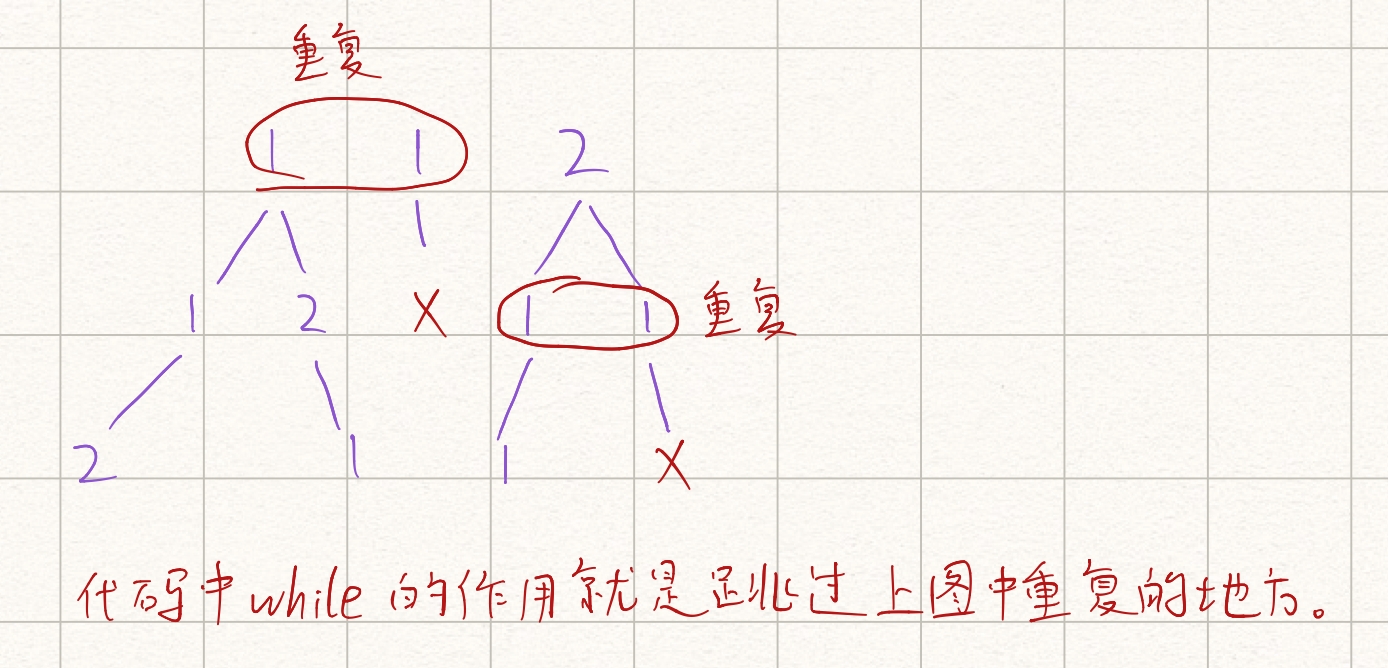 重复
1 1 2
1 2 X 1 1 重复
2 1 1 X
代码中while的作用就是跳过上图中重复的地方。